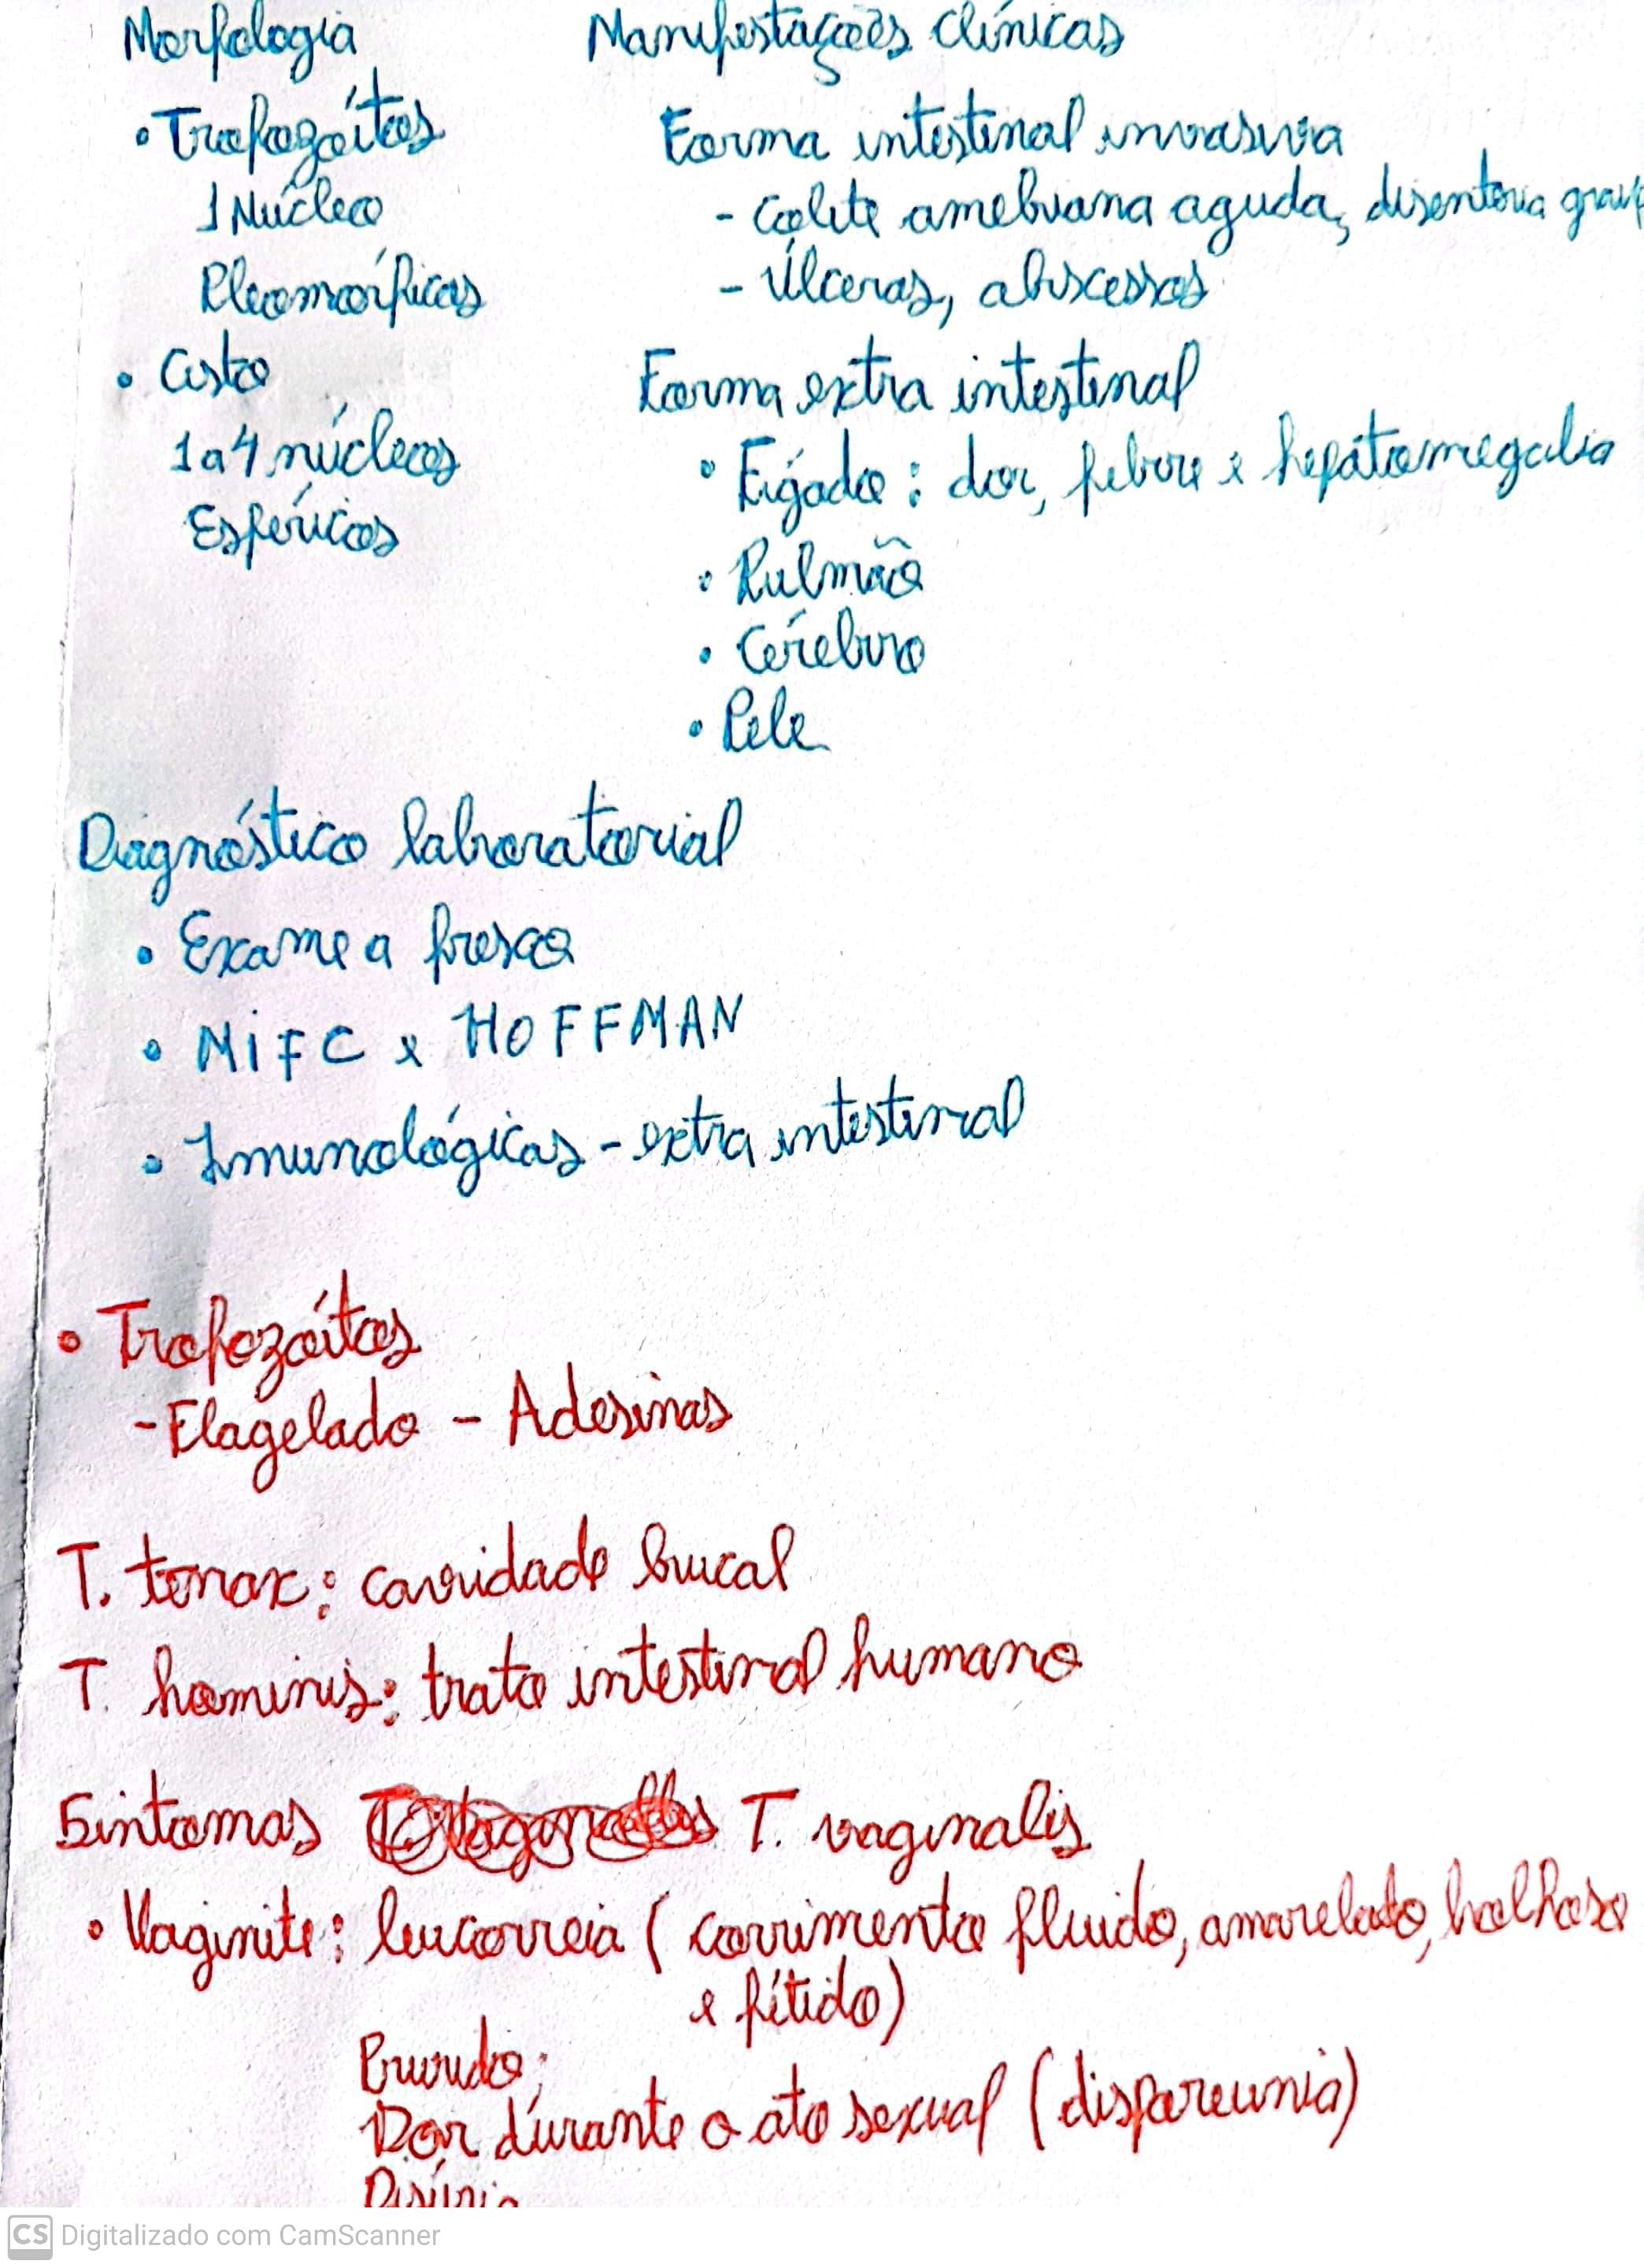 Morfologia
• Trofozoítos
1 Núcleo
Pleomórficos
• Cisto
1 a 4 núcleos
Esféricos
Manifestações clínicas
Forma intestinal invasiva
- Colite amebiana aguda, disenteria grave
- Úlceras, abscessos
Forma extra intestinal
• Fígado: dor, febre e hepatomegalia
• Pulmão
• Cérebro
• Pele
Diagnóstico laboratorial
• Exame a fresco
• MiFC e HOFFMAN
• Imunológicas - extra intestinal
• Trofozoítos
- Flagelado - Adesinas
T. tenax: cavidade bucal
T. hominis: trato intestinal humano
Sintomas T. vaginalis
• Vaginite: leucorreia (corrimento fluido, amarelado, bolhoso
e fétido)
Prurido;
Dor durante o ato sexual (dispareunia)
Disúria
CS Digitalizado com CamScanner